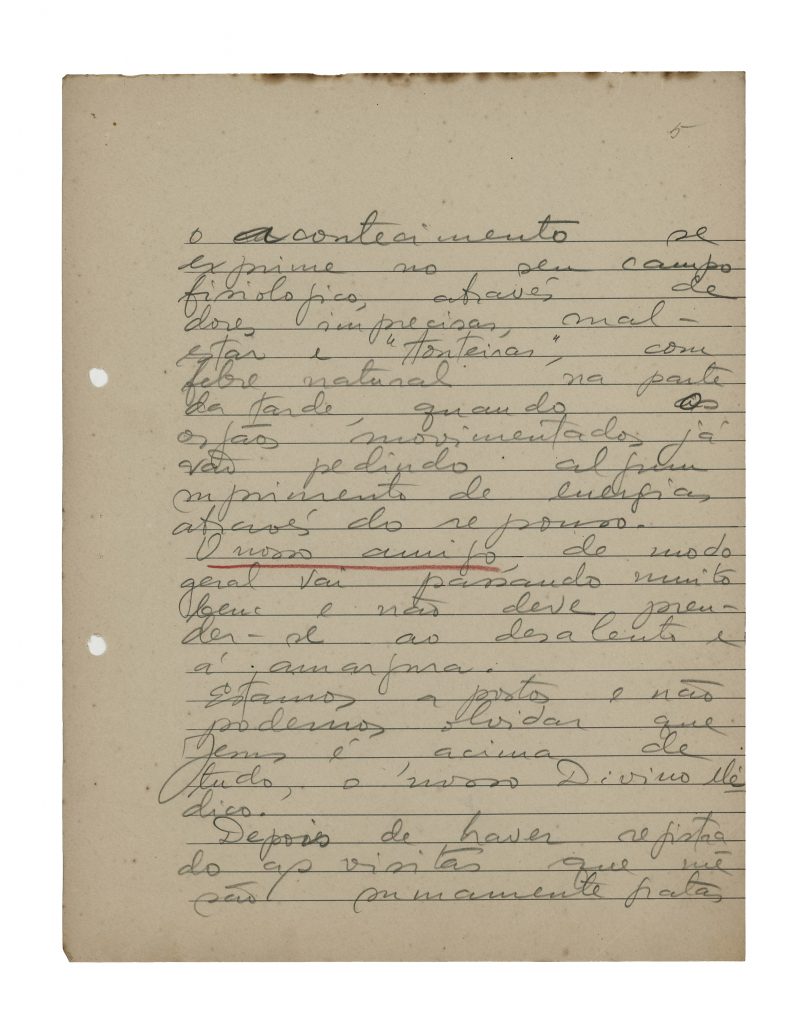 5
o acontecimento se
exprime no seu campo
fisiologico, através de
dores imprecisas, mal-
estar e "tonteiras", com
febre natural na parte
da tarde, quando os
orgãos movimentados já
vão pedindo algum
suprimento de energias
através do repouso.
O nosso amigo de modo
geral vai passando muito
bem e não deve pren-
der-se ao desalento e
á amargura.
Estamos a postos e não
podemos olvidar que
Jesus é, acima de
tudo, o nosso Divino Mé
dico.
Depois de haver registra
do as visitas que me
são sumamente gratas